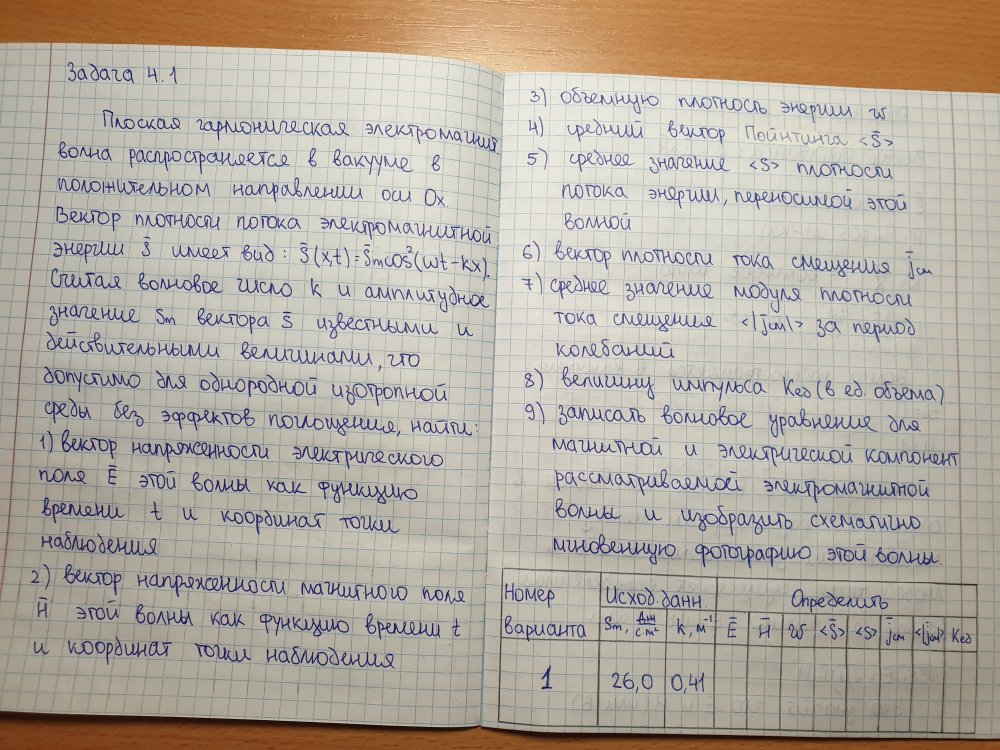 Задача 4.1
Плоская гармоническая электромагнит.
волна распространяется в вакууме в
положительном направлении оси Ox.
Вектор плотности потока электромагнитной
энергии S̄ имеет вид: S̄(x,t)=S̄m cos²(ωt-kx).
Считая волновое число k и амплитудное
значение Sm вектора S̄ известными и
действительными величинами, что
допустимо для однородной изотропной
среды без эффектов поглощения, найти:
1) вектор напряженности электрического
поля Ē этой волны как функцию
времени t и координат точки
наблюдения
2) вектор напряженности магнитного поля
H̄ этой волны как функцию времени t
и координат точки наблюдения
3) объемную плотность энергии w
4) средний вектор Пойнтинга <S̄>
5) среднее значение <S> плотности
потока энергии, переносимой этой
волной
6) вектор плотности тока смещения j̄см
7) среднее значение модуля плотности
тока смещения <|j̄см|> за период
колебаний
8) величину импульса Kед (в ед. объема)
9) записать волновое уравнение для
магнитной и электрической компонент
рассматриваемой электромагнитной
волны и изобразить схематично
мгновенную фотографию этой волны.
Номер Исход. данн. Определить
Варианта Sm, Дж/с·м² k, м⁻¹ Ē H̄ w <S̄> <S> j̄см <|j̄см|> Kед
1 26,0 0,41